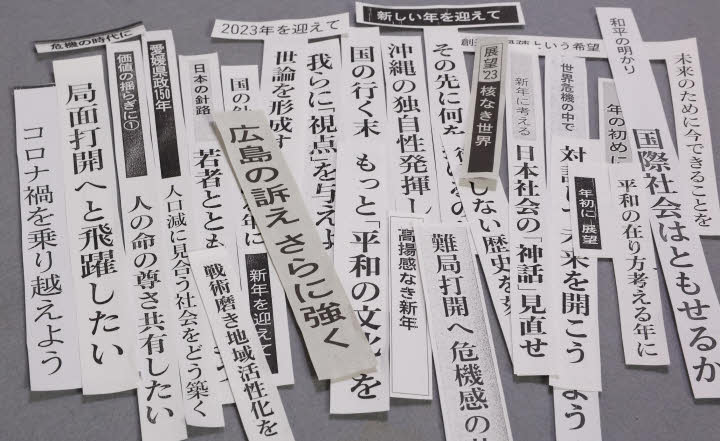 危機の時代に
2023年を迎えて
新しい年を迎えて
という希望
和平の明かり
未来のために今できることを
国際社会はともせるか
年の初めに
平和の在り方考える年に
世界危機の中で
年初に 展望
未来を開こう
新年に考える
日本社会の「神話」見直せ
展望'23
核なき世界
しない歴史を
その先に何
難局打開へ危機感の
沖縄の独自性発揮し
高揚感なき新年
国の行く末 もっと「平和の文化」を
我らに「視点」を与えよ
世論を形成す
広島の訴え さらに強く
新年を迎えて
日本の針路
若者ととも
戦術磨き地域活性化を
愛媛県政150年
人口減に見合う社会をどう築く
価値の揺らぎに①
人の命の尊さ共有したい
局面打開へと飛躍したい
コロナ禍を乗り越えよう